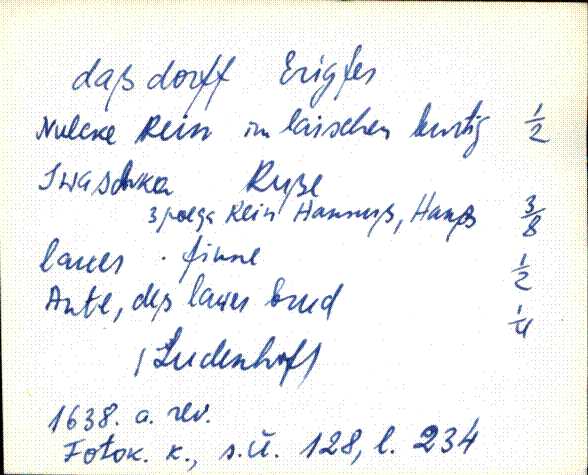 daß dorff Erigfer
Nulcke Rein im laischen burtig 1/2
Iwaschka Ruße
3 poega Rein Hannuß, Hanß 3/8
laues. finne 1/2
Ante, deß laues brud 1/4
(Ludenhoff)
1638. a. rev.
Fotok. k., s.ü. 128, l. 234